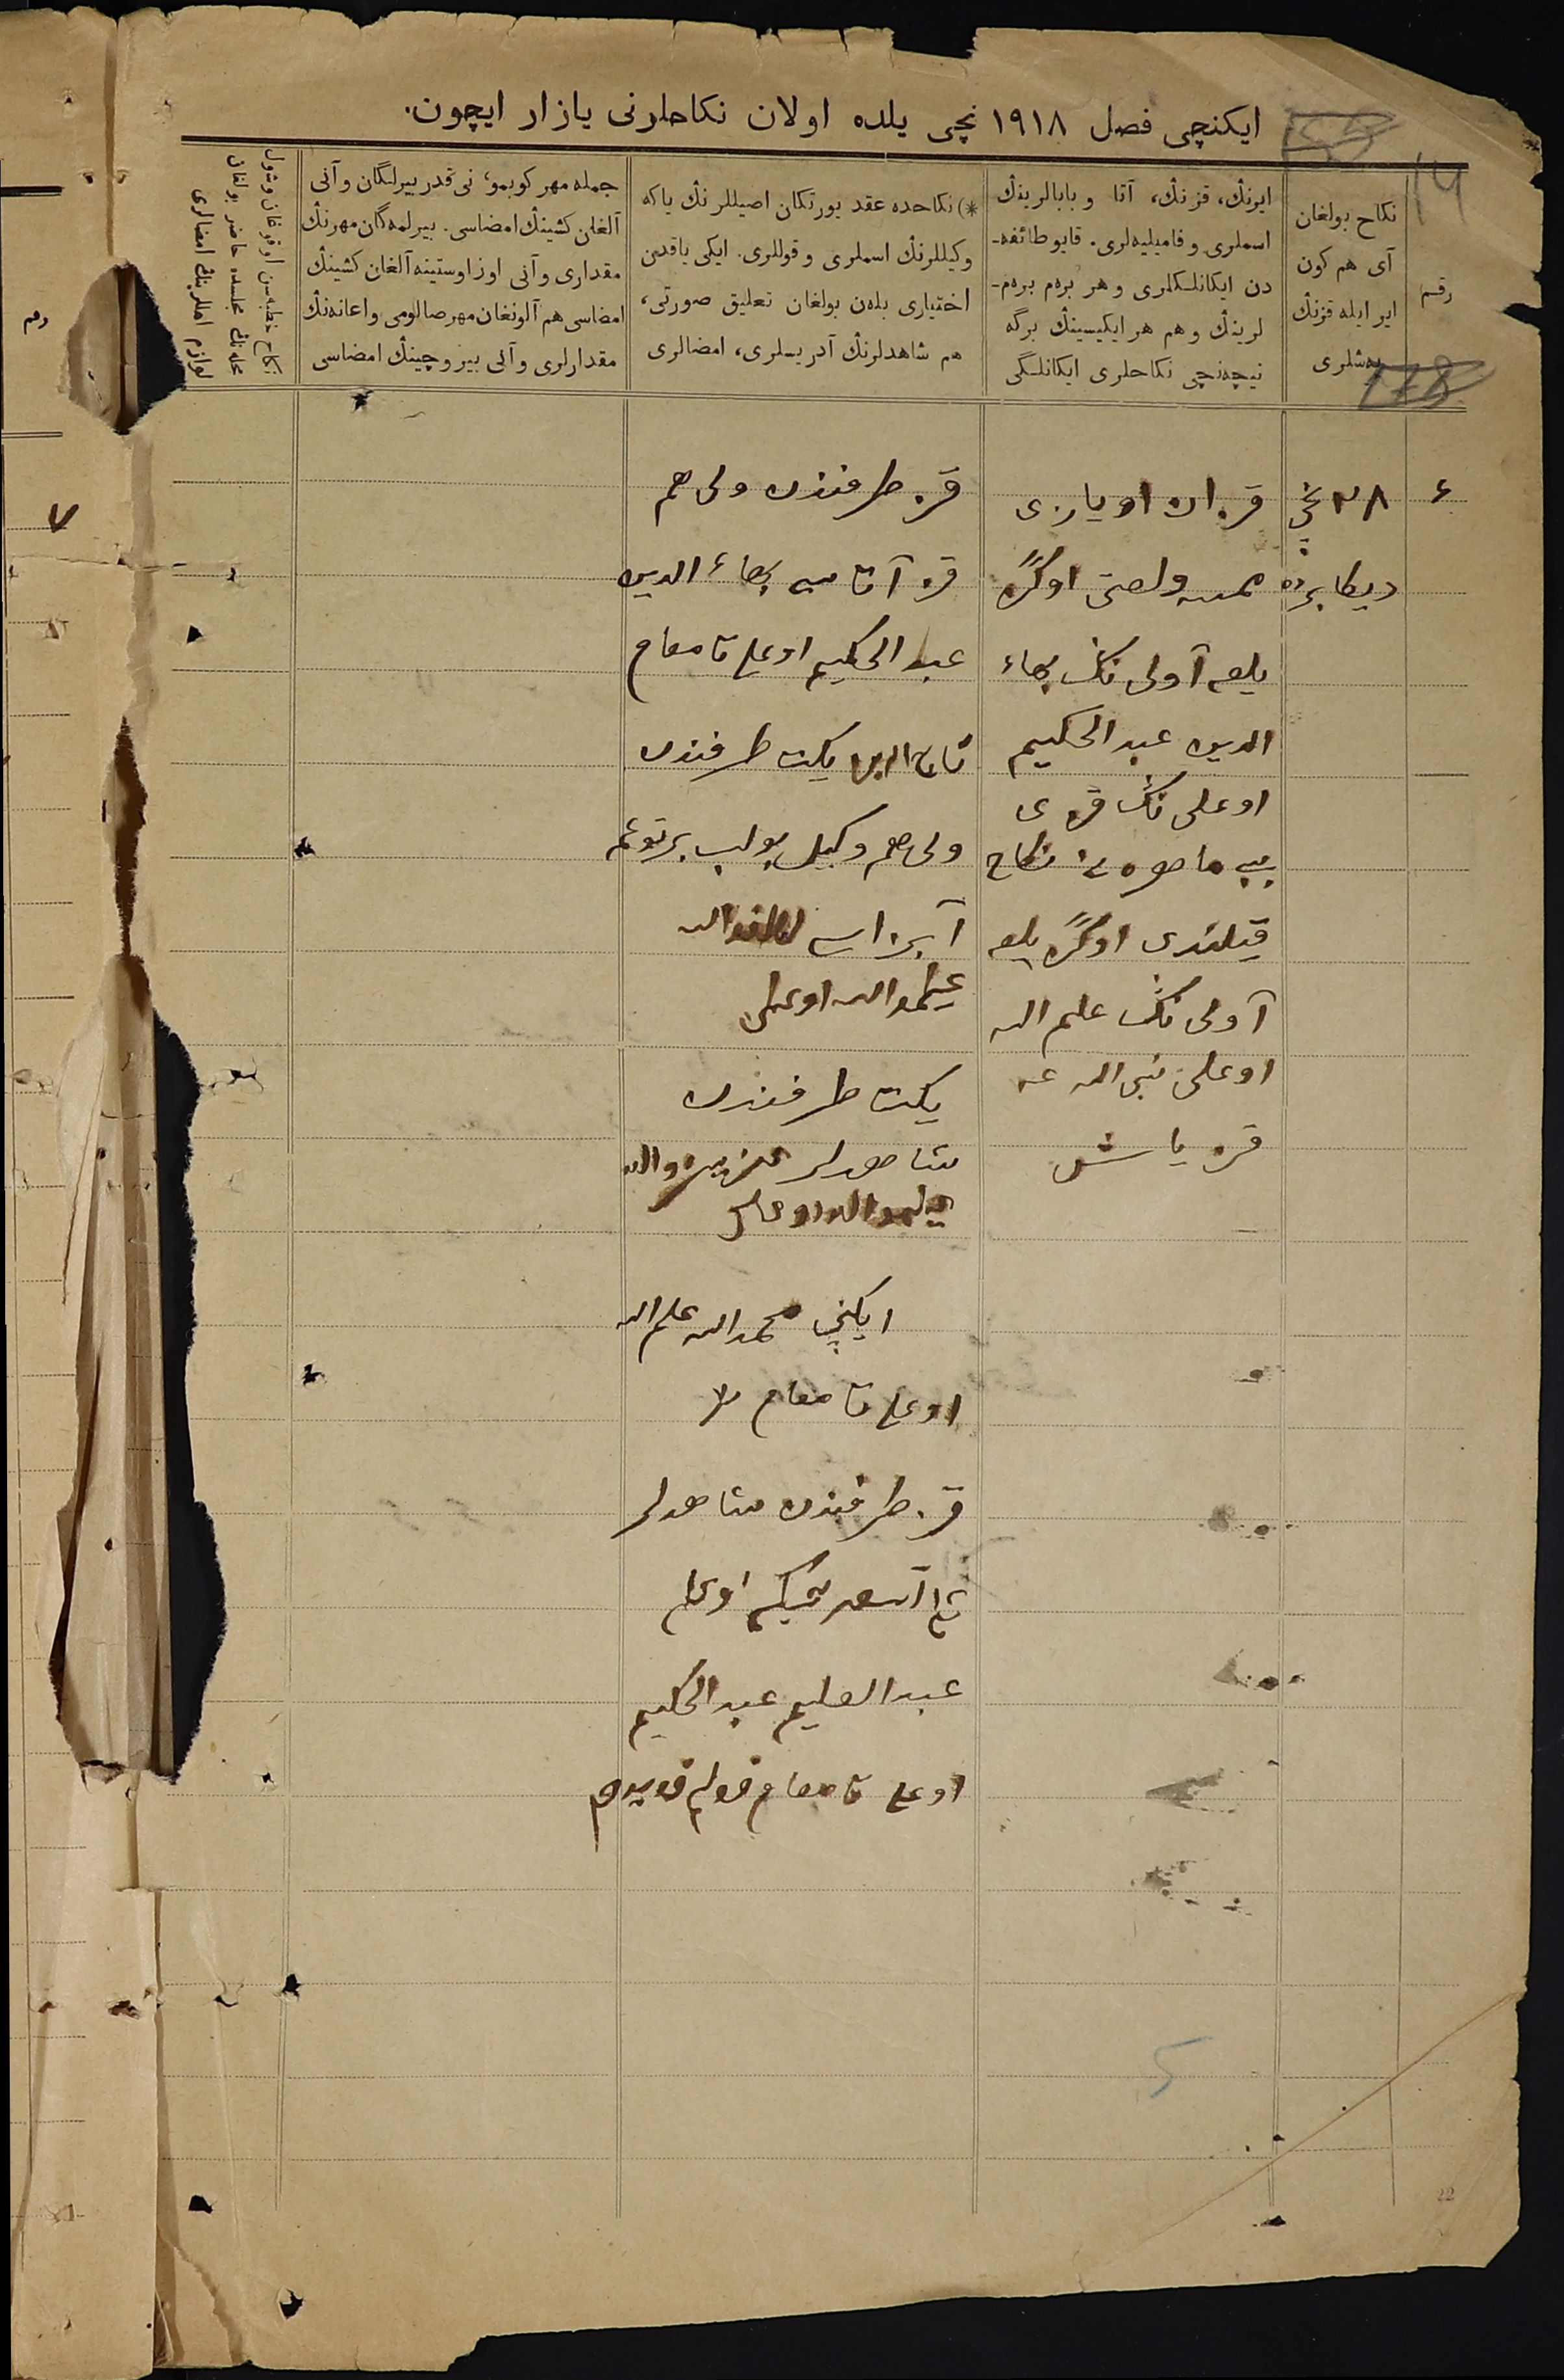 ایکنچی فصل ۱۹۱۸ نچی یلده اولان نکاحلرنی یازار ایچون.
رقم
نکاح بولغان
آی هم کون
ایر ایله قزنڭ
یەشلری
ایرنڭ، قزنڭ، آتا و بابالرینڭ
اسملری و فامیلیەلری. قایو طائفە-
دن ایکانلکلری و هر برەم برەم-
لرینڭ و هم هر ایکیسینڭ برگە
نیچەنچی نکاحلری ایکانلگی
*) نکاحدە عقد یورتکان اصیللرنڭ یاکە
وکیللرنڭ اسملری و قوللری. ایکی یاقدن
اختیاری بلەن بولغان تعلیق صورتی،
هم شاهدلرنڭ آدریسلری، امضالری
جملە مهر کوبمو، نی قدر بیرلگان و آنی
آلغان کشینڭ امضاسی. بیرلمەگان مهرنڭ
مقداری و آنی اوز اوستینە آلغان کشینڭ
امضاسی هم آلونغان مهر صالومی و اعانەنڭ
مقدارلری و آلی بیروچینڭ امضاسی
نکاح خطبەسن اوقوغان و شول
محلەنڭ مجلسدە حاضر بولغان
لوازم اهللرینڭ امضالری
رقم
۷
14
178
۶
۲۸ نچی
دیکابردە
قزان اویازی
ولصتی اوگزە
یلغە آولی نڭ بهاء
الدین عبد الحکیم
اوغلی نڭ قزی
بیبی ماهرە نی نکاح
قیلندی اوگزە یلغە
آولی نڭ علم اللہ
اوغلی نبی اللہ غە
قز یاش
قز طرفندن ولی هم
قز آتاسی بهاء الدین
عبد الحکیم اوغلی تامغام
تاج الدین یکت طرفندن
ولی هم وکیل بولب بر توغمە
آبزاسی لطف اللہ
عظیم اللہ اوغلی
یکت طرفندن
شاهدلر
ایکنچی محمد اللہ علم اللہ
اوغلی تامغام
قز طرفندن شاهدلر
اوغلی
عبد العلیم عبد الحکیم
اوغلی تامغام قولم قویدم
5
22